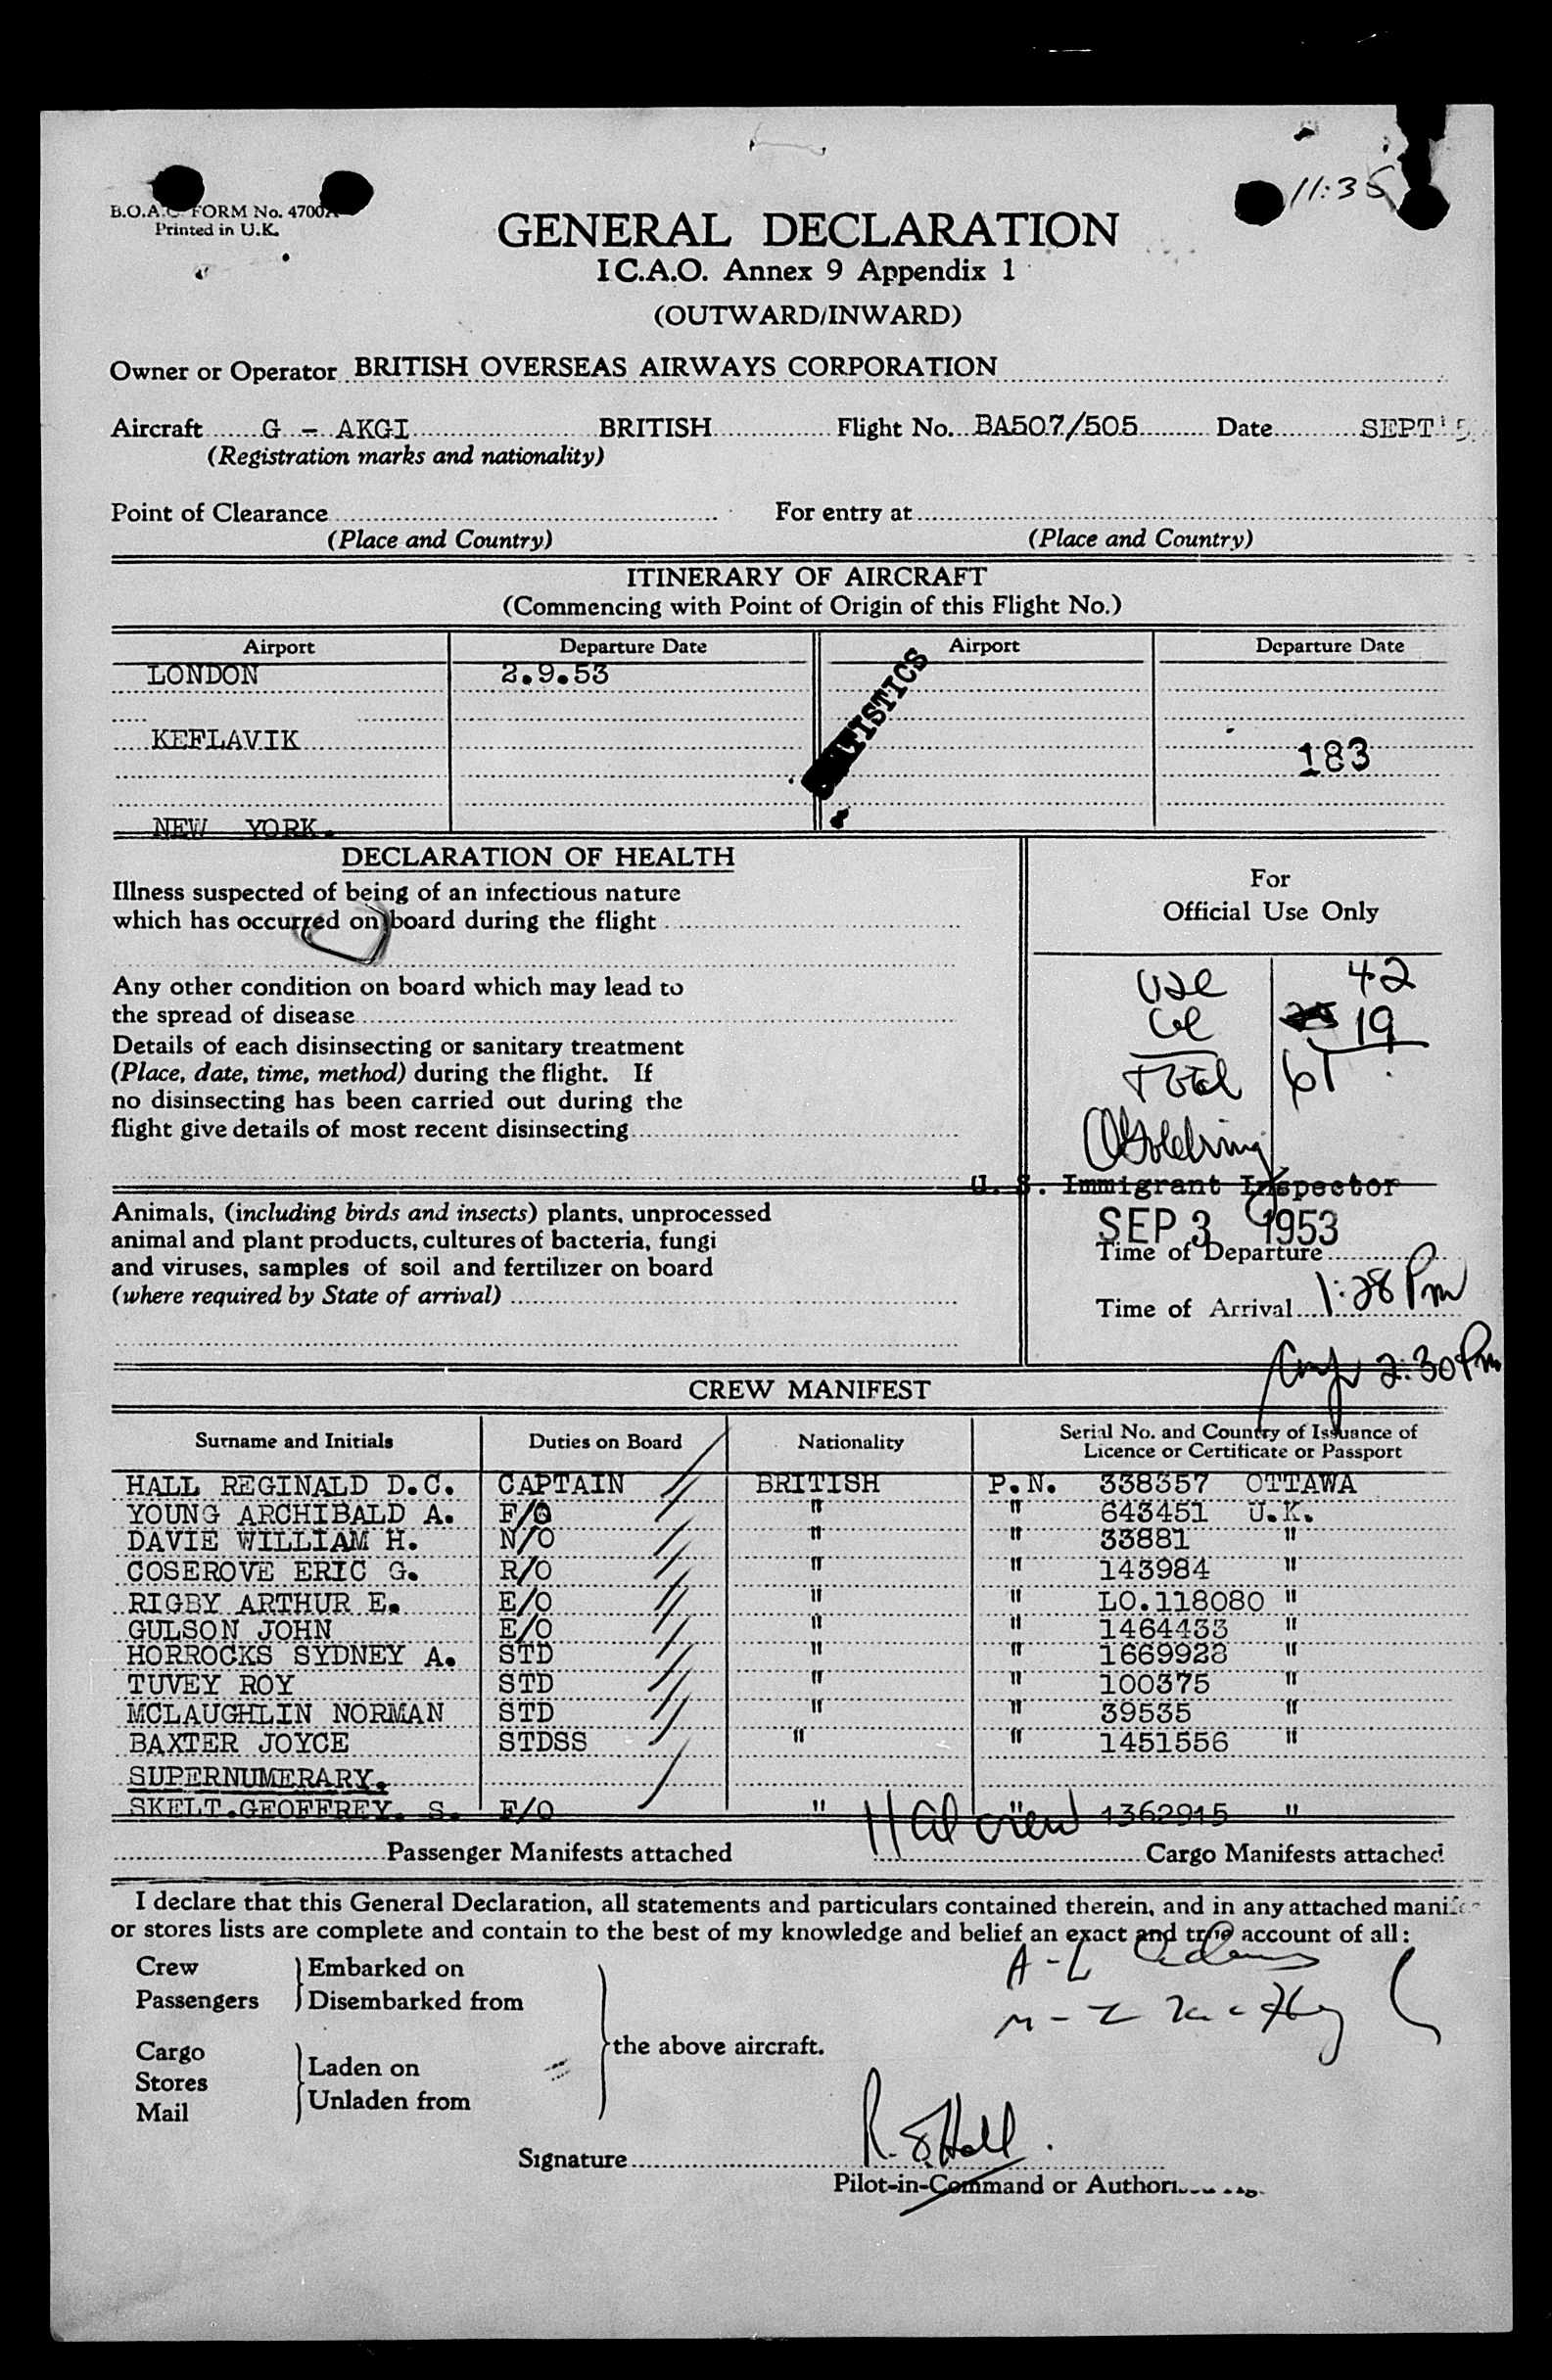 11:35
B.O.A.C. FORM No. 4700A
Printed in U.K.
GENERAL DECLARATION
I C.A.O. Annex 9 Appendix 1
(OUTWARD/INWARD)
Owner or Operator BRITISH OVERSEAS AIRWAYS CORPORATION
Aircraft G - AKGI BRITISH Flight No. BA507/505 Date SEPT'5
(Registration marks and nationality)
Point of Clearance For entry at
(Place and Country) (Place and Country)
ITINERARY OF AIRCRAFT
(Commencing with Point of Origin of this Flight No.)
Airport Departure Date Airport Departure Date
LONDON 2.9.53
KEFLAVIK
183
NEW YORK.
DECLARATION OF HEALTH
Illness suspected of being of an infectious nature
which has occurred on board during the flight
Any other condition on board which may lead to
the spread of disease
Details of each disinsecting or sanitary treatment
(Place, date, time, method) during the flight. If
no disinsecting has been carried out during the
flight give details of most recent disinsecting
Animals, (including birds and insects) plants, unprocessed
animal and plant products, cultures of bacteria, fungi
and viruses, samples of soil and fertilizer on board
(where required by State of arrival)
For
Official Use Only
USC 42
19
Total 61
U. S. Immigrant Inspector
SEP 3 1953
Time of Departure
Time of Arrival 1:28 Pm
2:30 Pm
CREW MANIFEST
Surname and Initials Duties on Board Nationality Serial No. and Country of Issuance of
Licence or Certificate or Passport
HALL REGINALD D.C. CAPTAIN BRITISH P.N. 338357 OTTAWA
YOUNG ARCHIBALD A. F/O " " 643451 U.K.
DAVIE WILLIAM H. N/O " " 33881 "
COSEROVE ERIC G. R/O " " 143984 "
RIGBY ARTHUR E. E/O " " LO.118080 "
GULSON JOHN E/O " " 1464433 "
HORROCKS SYDNEY A. STD " " 1669928 "
TUVEY ROY STD " " 100375 "
MCLAUGHLIN NORMAN STD " " 39535 "
BAXTER JOYCE STDSS " " 1451556 "
SUPERNUMERARY.
SKELT.GEOFFREY. S. F/O " " 1362915 "
11 al crew
Passenger Manifests attached Cargo Manifests attached
I declare that this General Declaration, all statements and particulars contained therein, and in any attached
or stores lists are complete and contain to the best of my knowledge and belief an exact and true account of all:
Crew Embarked on
Passengers Disembarked from
the above aircraft.
Cargo
Stores Laden on
Mail Unladen from
Signature
Pilot-in-Command or